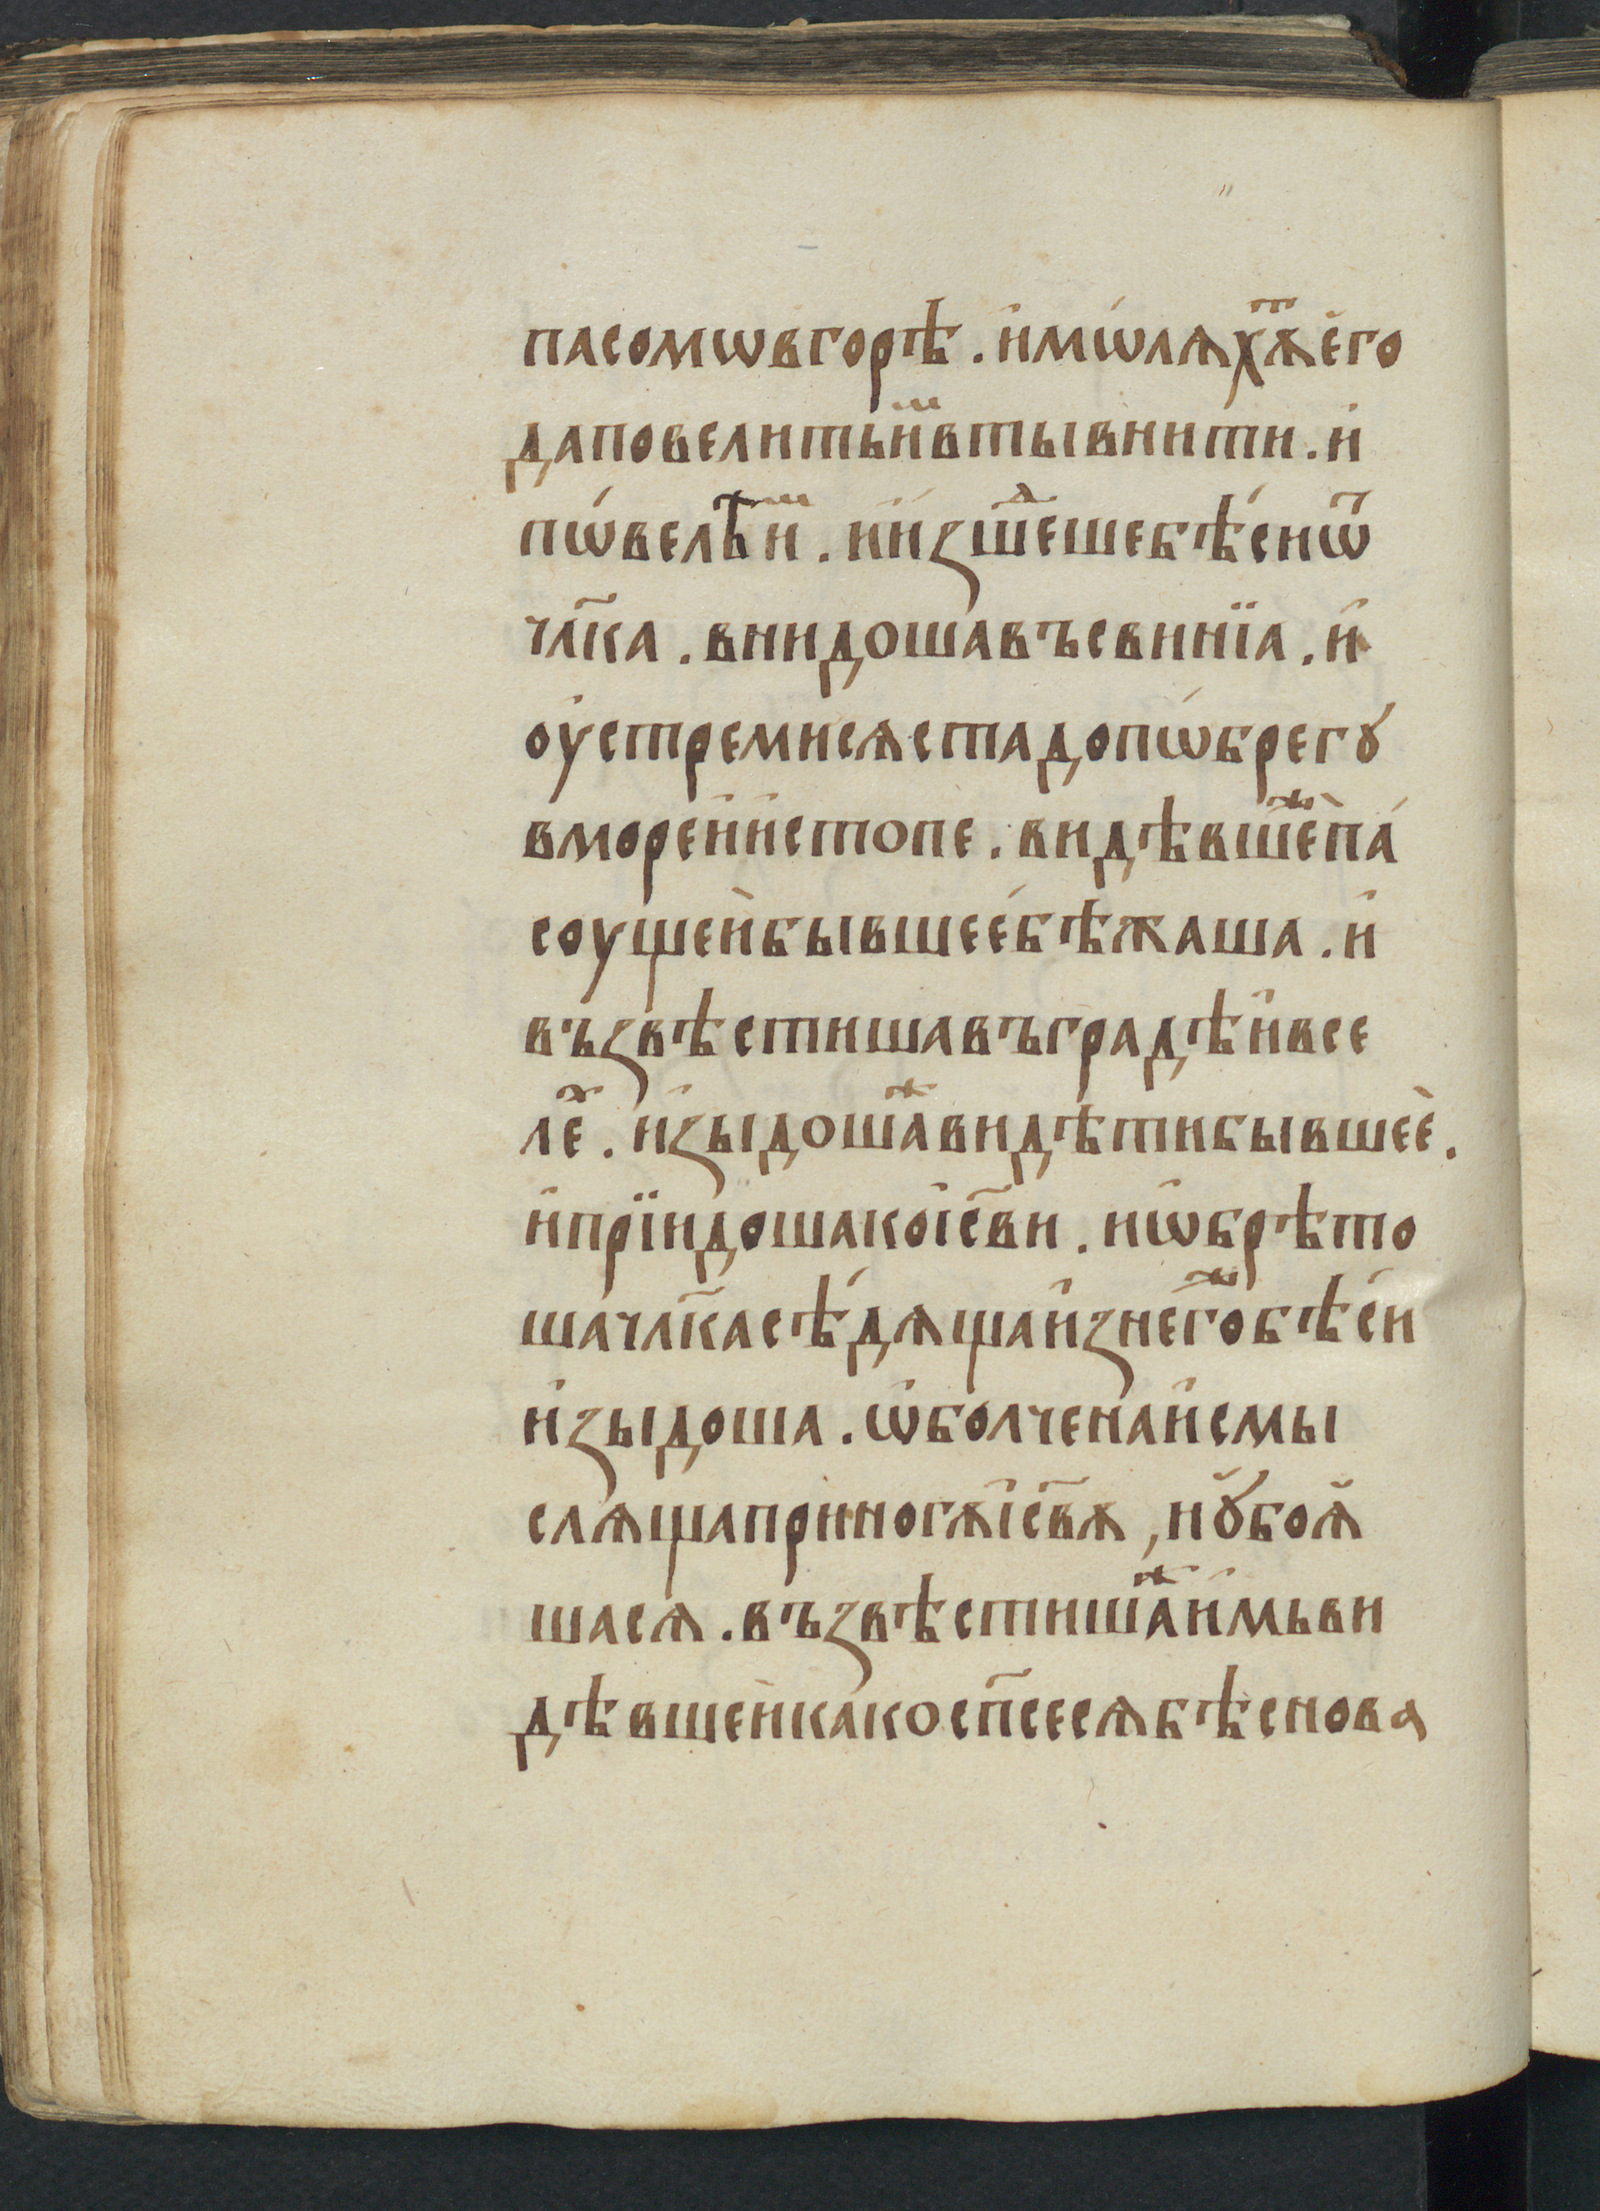 пасомѡвгорѣ . и҆мѡ́лѧхѫⷮєго
даповелитьи҆ⷨвтывнити . и҆
пѡ́велѣⷨи . и҆и҆зшеⷣшебѣсиѿ
чл҃ка . внидошавъсвинїа . и҆
оу҆стремисѧстадопѡ́брегꙋ
вморєи҆и҆стопе . видѣвшеⷤпа́
соущеи҆бывшеебѣжаша . и҆
възвѣстишавъградѣи҆все
леⷯ . и҆зыдошаⷤвидѣтибывшее .
и҆прїидошакоіс҃ви . иѡ҆брѣто
шачл҃касѣдѧщаи҆знегоⷤбѣси
и҆зыдоша . ѡ҆болченаи҆смы
слѧщаприногꙋ҆іс҃вꙋ , иꙋбоѧ
шасѧ . възвѣстишаⷤи҆мьви
дѣвшеи҆какосп҃сесѧбѣснова